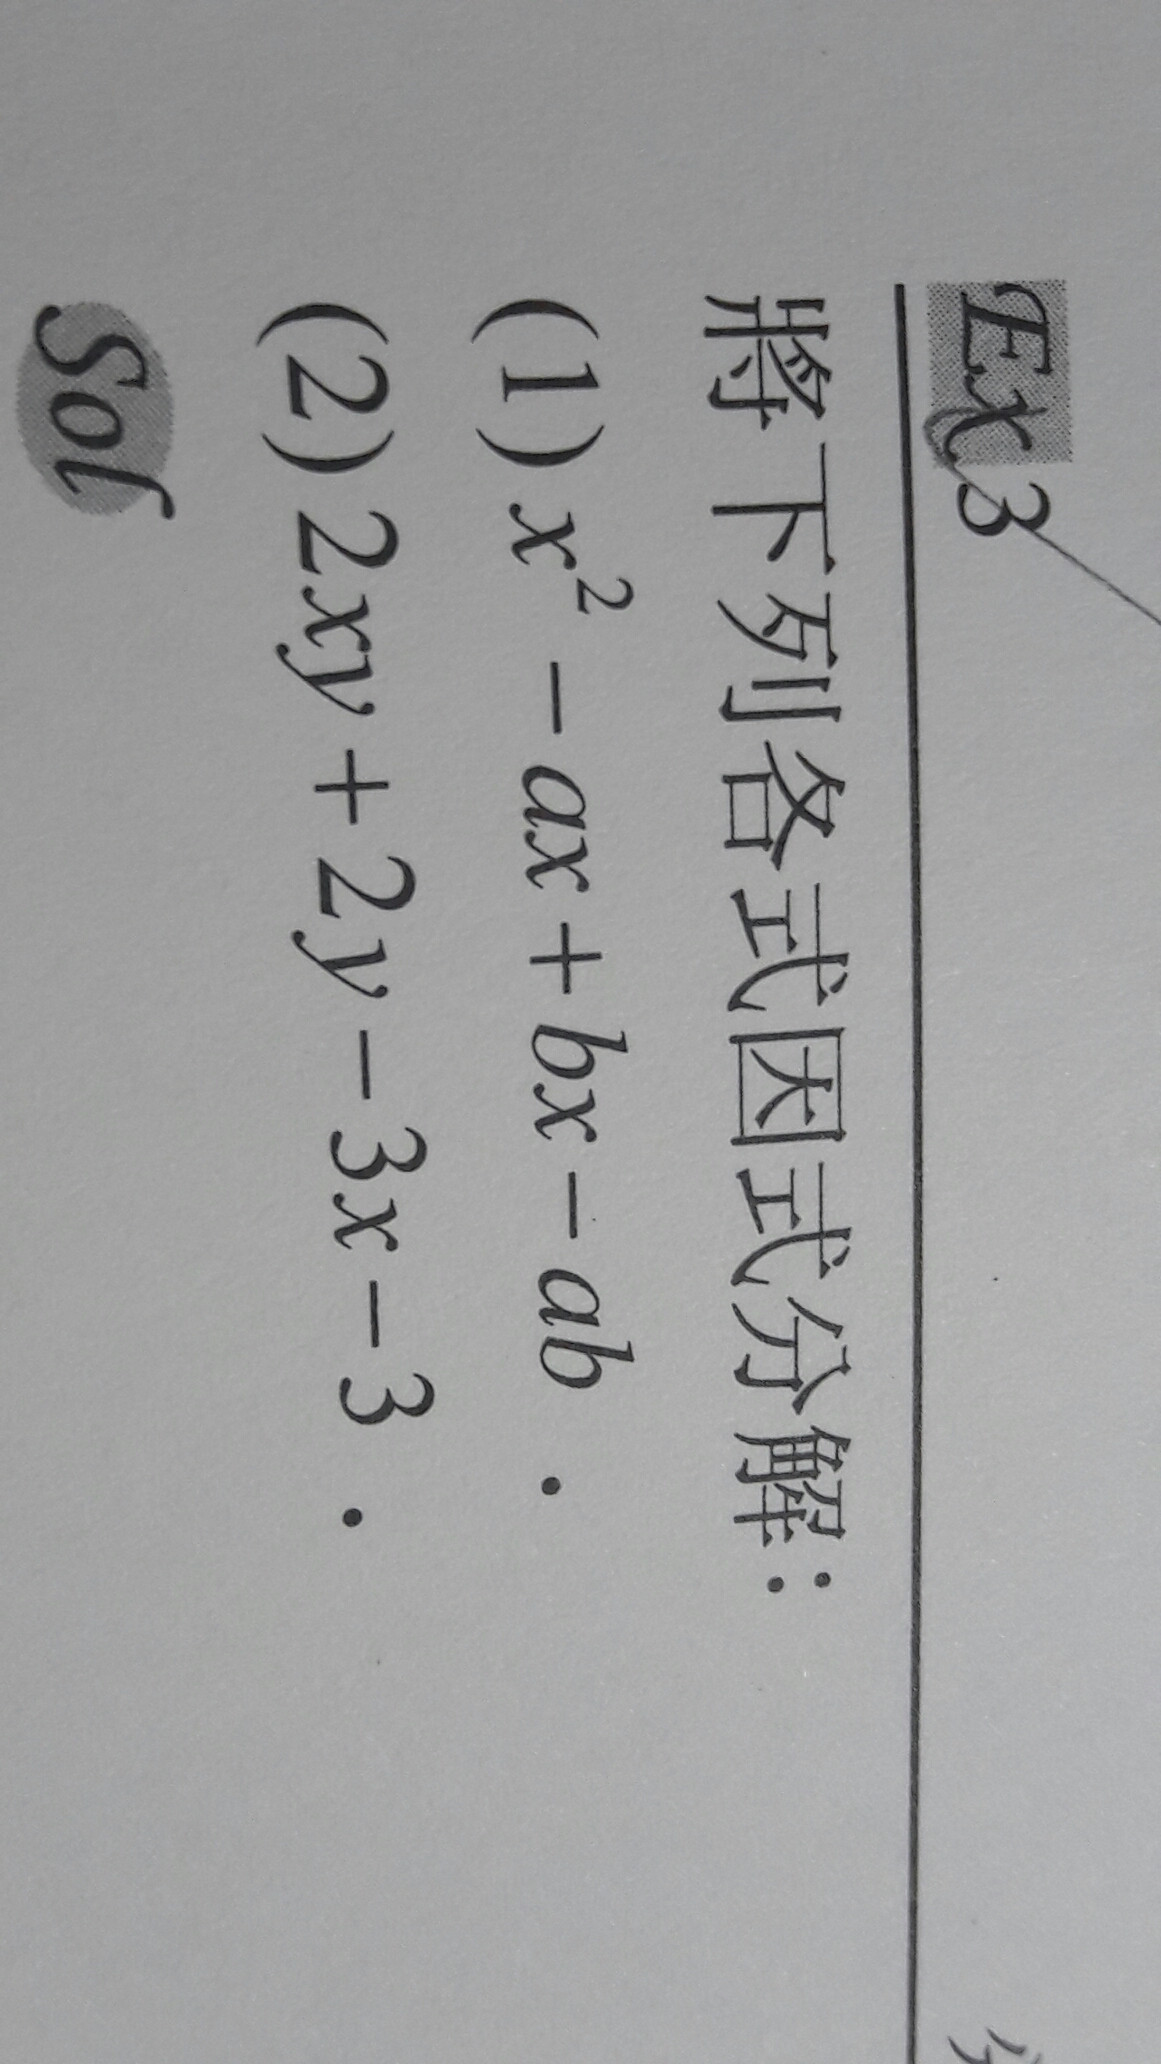 Ex 3
將下列各式因式分解：
(1) x² − ax + bx − ab．
(2) 2xy + 2y − 3x − 3．
Sol